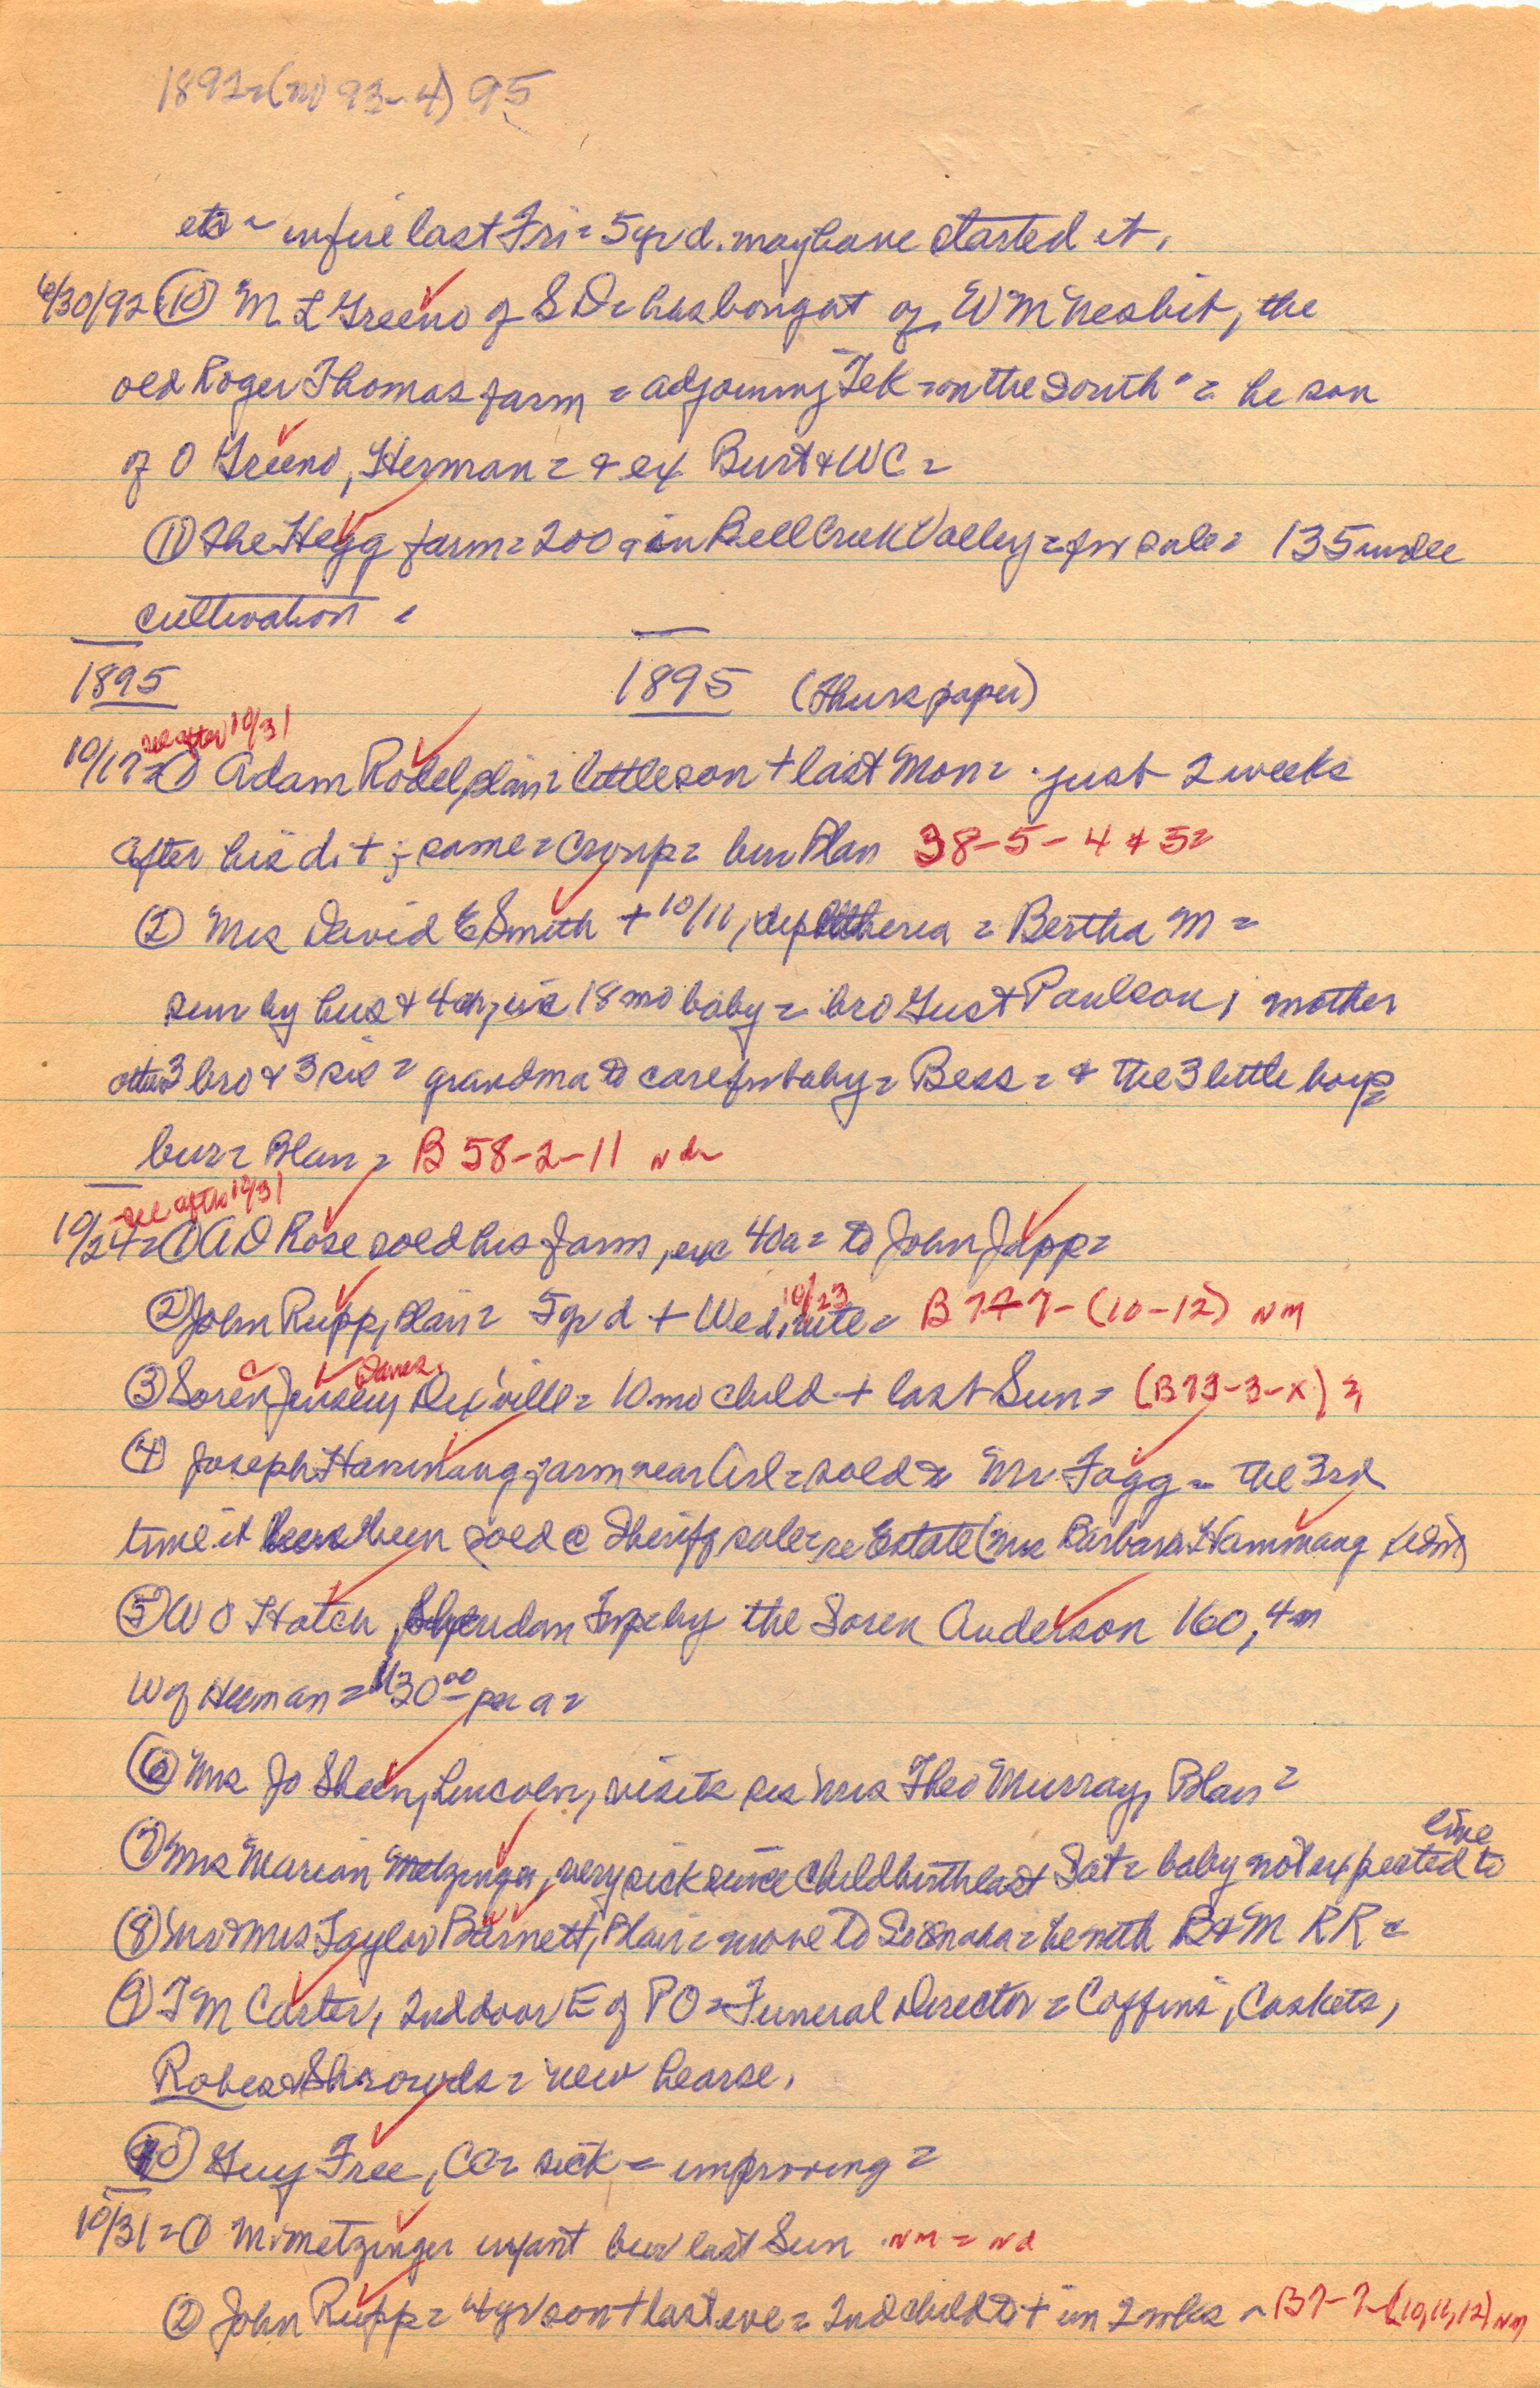 1892 = (no 93-4) 95
etc = in fire last Fri = 5 yr d. may have started it.
6/30/92 (10) M L Greeno of S D = has bought of W M Nesbit, the
old Roger Thomas farm = adjoining Tek = on the south = he son
of O Greeno, Herman = & ex Burt & WC =
(11) The Hegg farm = 200 a in Bell Creek Valley = for sale = 135 under
cultivation =
1895 1895 (Thurs paper)
see after 10/31
10/17 = (1) Adam Rodel, Blair = little son + last Mon = just 2 weeks
after his d. + ; same = croup = bur Blair 38-5-4 & 5 =
(2) Mrs David E Smith + 10/11, diphtheria = Bertha M =
surv by hus & 4 ch, inc 18 mo baby = bro Gust Paulson ; mother
other 3 bro & 3 sis = grandma to care for baby = Bess = & the 3 little boys =
bur = Blair = B 58-2-11 nd
see after 10/31
10/24 = (1) A D Rose sold his farm, exc 40a = to John Japp =
10/23
(2) John Rupp, Blair = 5 yr d + Wed. nite = B 77-7-(10-12) NM
Danes.
(3) Soren Jensen, Dex'ville = 10 mo child + last Sun = (B 73-3-X) ?
(4) Joseph Hammang farm near Arl = sold to Mr Fagg = the 3rd
time it has been sold @ Sheriff sale = re Estate (Mrs Barbara Hammang
(5) W O Hatch, Sheridan Twp = buy the Soren Anderson 160, 4 m
W of Herman = $30.00 per a =
(6) Mrs Jo Sheen, Lincoln, visits sis Mrs Theo Murray, Blair =
live
(7) Mrs Marion Metzinger, very sick since childbirth last Sat = baby not expected to
(8) Mr & Mrs Taylor Barnett, Blair = move to So Omaha = he with B & M RR =
(9) T M Carter, 2nd door E of PO = Funeral Director = Coffins, Caskets,
Robes & Shrowds = new hearse.
(10) Guy Free, CC = sick = improving =
10/31 = (1) M Metzinger infant bur last Sun NM = Nd
(2) John Rupp = 4 yr son + last eve = 2nd child to + in 2 wks = B 7-7-(10,11,12) NM